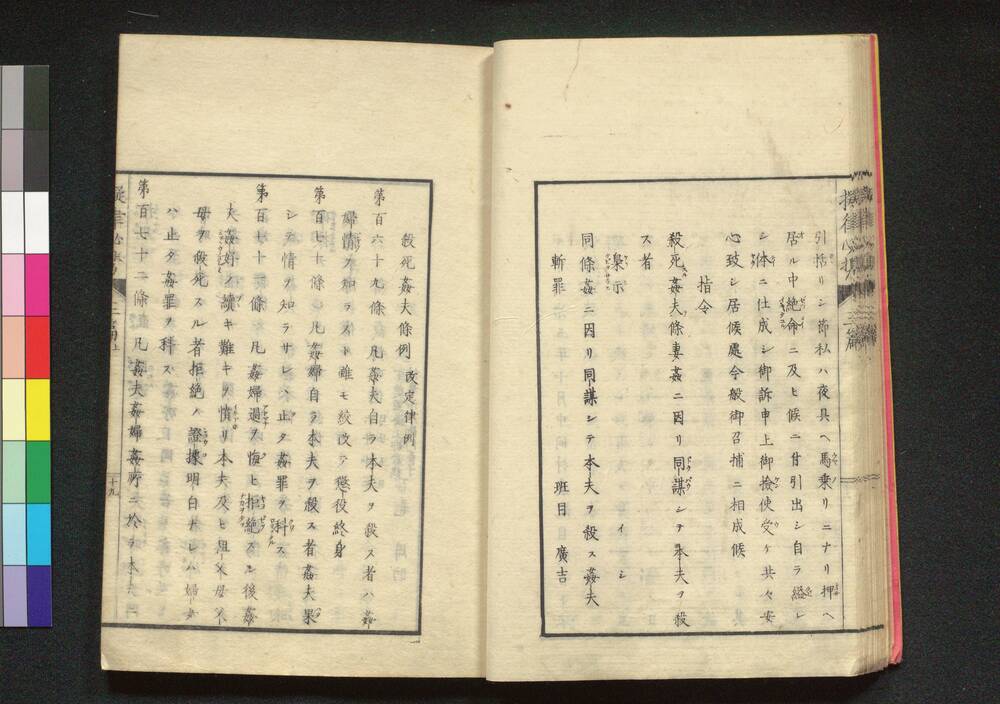 引括リシ節私ハ夜具ヘ馬乗リニナリ押ヘ
居ル中絶命ニ及ヒ候ニ付引出シ自ラ縊レ
シ体ニ仕成シ御訴申上御撿使受ケ共々安
心致シ居候處今般御召捕ニ相成候
指令
殺死姦夫條妻姦ニ因リ同謀シテ本夫ヲ殺
ス者
梟示 イシ
同條姦ニ因リ同謀シテ本夫ヲ殺ス姦夫
斬罪 班目廣吉
殺死姦夫條例 改定律例
第百六十九條 凡姦夫自ラ本夫ヲ殺ス者ハ姦
婦情ヲ知ラスト雖モ絞改テ懲役終身
第百七十條 凡姦婦自ラ本夫ヲ殺ス者姦夫果
シテ情ヲ知ラサレハ止タ姦罪ヲ科ス
第百七十一條 凡姦婦過ヲ悔ヒ拒絶スル後姦
夫姦好ヲ續キ難キヲ憤リ本夫及ヒ祖父母父
母ヲ殺死スル者拒絶ノ證據明白ナレハ婦女
ハ止タ姦罪ヲ科ス
第百七十二條 凡姦夫姦婦姦所ニ於テ本夫
十九